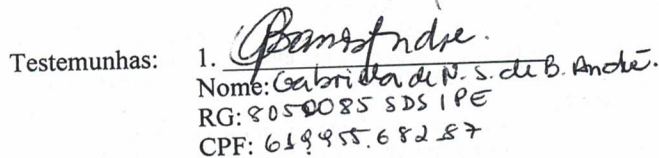 Testemunhas: 1.
Nome: Gabriella de N. S. de B. André.
RG: 8050085 SDS IPE
CPF: 619955.682 87